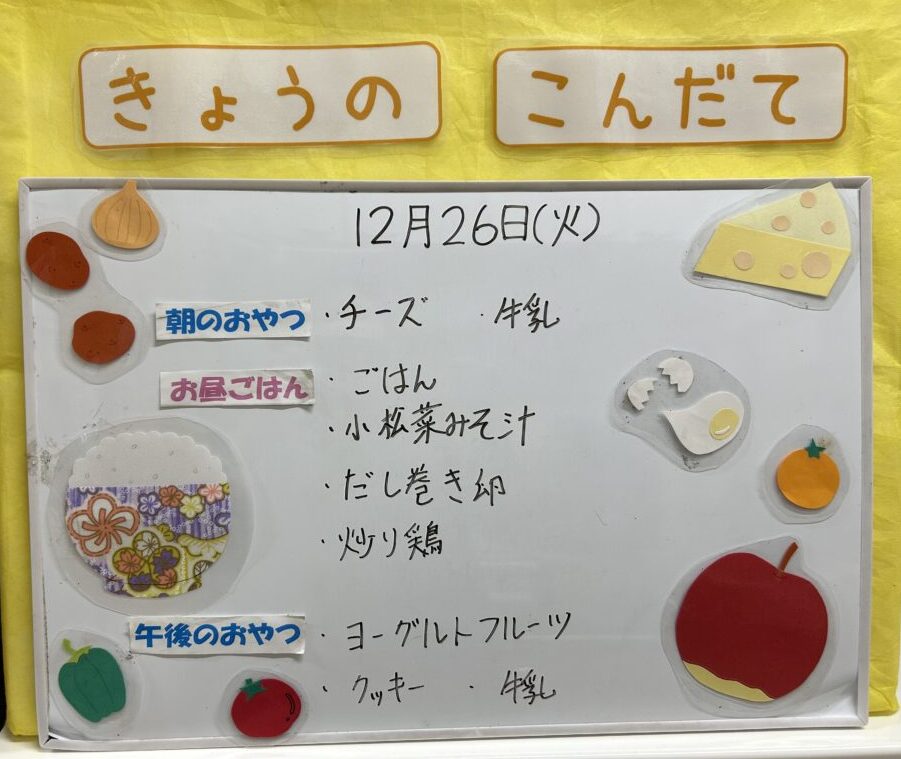 きょうの こんだて
12月26日(火)
朝のおやつ ・チーズ ・牛乳
お昼ごはん ・ごはん
・小松菜みそ汁
・だし巻き卵
・炒り鶏
午後のおやつ ・ヨーグルトフルーツ
・クッキー ・牛乳